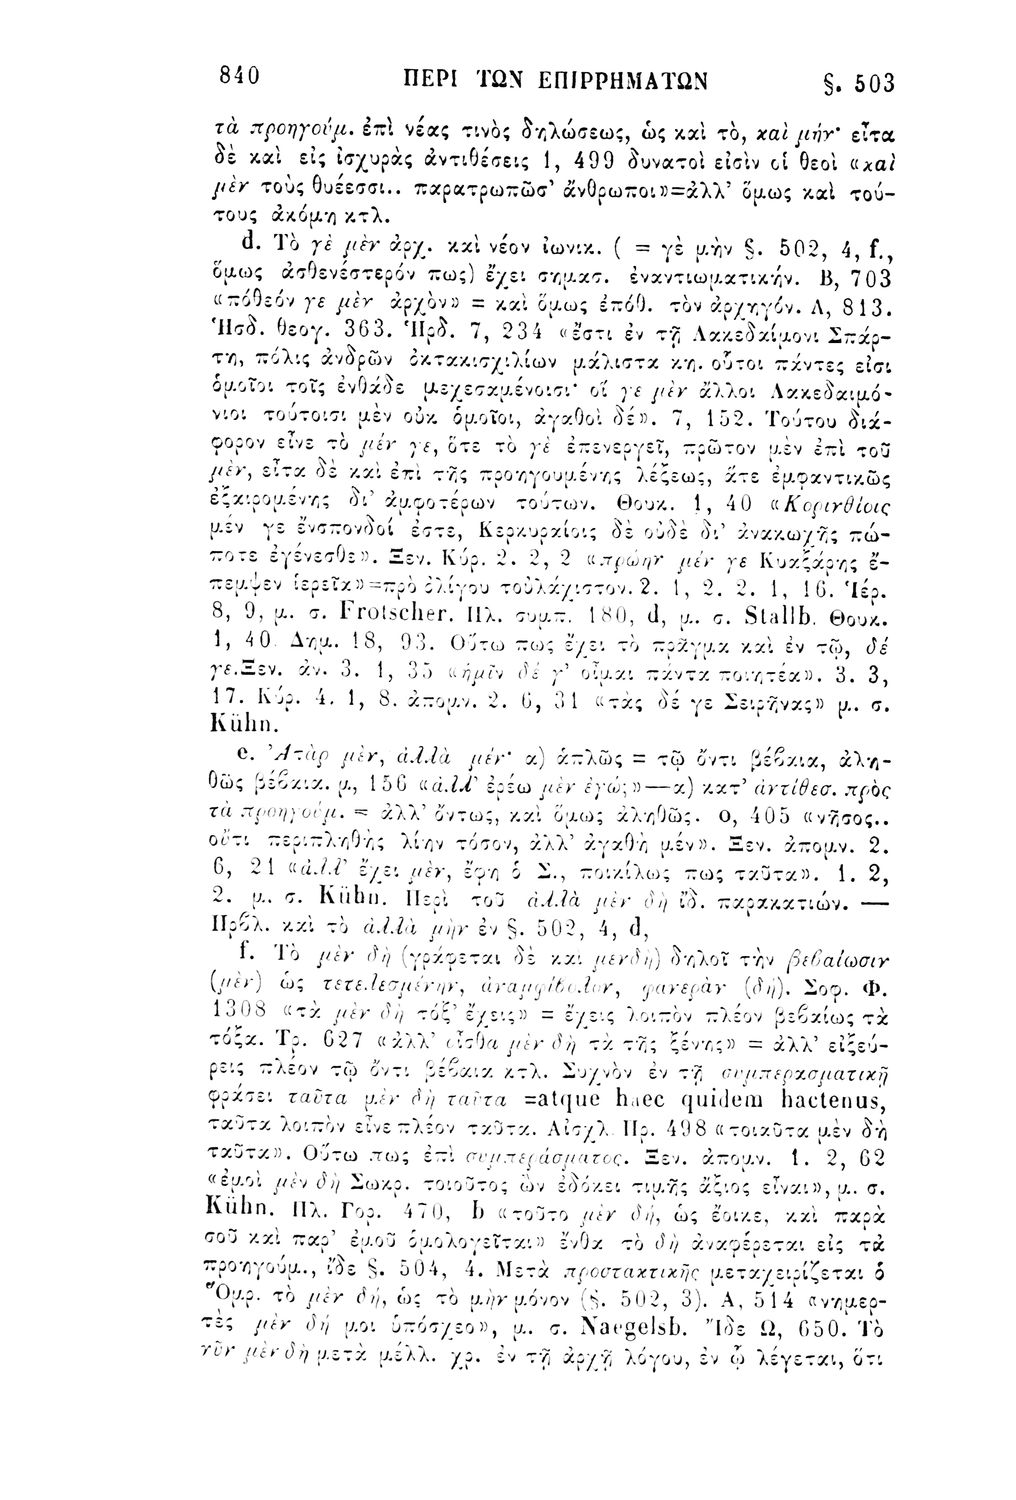 840 ΠΕΡΙ ΤΩΝ ΕΠΙΡΡΗΜΑΤΩΝ §. 503
τὰ προηγούμ. ἐπὶ νέας τινὸς δηλώσεως, ὡς καὶ τὸ, καὶ μήν· εἶτα
δὲ καὶ εἰς ἰσχυρὰς ἀντιθέσεις 1, 499 δυνατοὶ εἰσὶν οἱ θεοὶ «καὶ
μὲν τοὺς θυέεσσι.. παρατρωπῶσ’ ἄνθρωποι»=ἀλλ’ ὅμως καὶ τού-
τους ἀκόμη κτλ.
d. Τὸ γὲ μὲν ἀρχ. καὶ νέον ἰωνικ. ( = γὲ μὴν §. 502, 4, f.,
ὅμως ἀσθενέστερόν πως) ἔχει σημασ. ἐναντιωματικήν. Β, 703
«πόθεόν γε μὲν ἀρχὸν» = καὶ ὅμως ἐπόθ. τὸν ἀρχηγόν. Λ, 813.
Ἡσδ. θεογ. 363. Ἡρδ. 7, 234 «ἔστι ἐν τῇ Λακεδαίμονι Σπάρ-
τη, πόλις ἀνδρῶν ὀκτακισχιλίων μάλιστα κη. οὗτοι πάντες εἰσι
ὁμοῖοι τοῖς ἐνθάδε μαχεσαμένοισι· οἵ γε μὲν ἄλλοι Λακεδαιμό-
νιοι τούτοισι μὲν οὐκ ὁμοῖοι, ἀγαθοὶ δέ». 7, 152. Τούτου διά-
φορον εἶνε τὸ μέν γε, ὅτε τὸ γὲ ἐπενεργεῖ, πρῶτον μὲν ἐπὶ τοῦ
μὲν, εἶτα δὲ καὶ ἐπὶ τῆς προηγουμένης λέξεως, ἅτε ἐμφαντικῶς
ἐξαιρομένης δι’ ἀμφοτέρων τούτων. Θουκ. 1, 40 «Κορινθίοις
μέν γε ἔνσπονδοί ἐστε, Κερκυραίοις δὲ οὐδὲ δι’ ἀνακωχῆς πώ-
ποτε ἐγένεσθε». Ξεν. Κύρ. 2. 2, 2 «πρώην μέν γε Κυαξάρης ἔ-
πεμψεν ἱερεῖα»=πρὸ ὀλίγου τοὐλάχιστον. 2. 1, 2. 2. 1, 16. Ἱέρ.
8, 9, μ. σ. Frotscher. Πλ. συμπ. 180, d, μ. σ. Stallb. Θουκ.
1, 40. Δημ. 18, 93. Οὕτω πως ἔχει τὸ πρᾶγμα καὶ ἐν τῷ, δέ
γε. Ξεν. ἀν. 3. 1, 35 «ἡμῖν δέ γ’ οἶμαι πάντα ποιητέα». 3. 3,
17. Κύρ. 4. 1, 8. ἀπομν. 2. 6, 31 «τὰς δέ γε Σειρῆνας» μ. σ.
Kühn.
e. Ἀτὰρ μὲν, ἀλλὰ μέν· α) ἁπλῶς = τῷ ὄντι βέβαια, ἀλη-
θῶς βέβαια. μ, 156 «ἀλλ’ ἐρέω μὲν ἐγώ;»—α) κατ’ ἀντίθεσ. πρὸς
τὰ προηγούμ. = ἀλλ’ ὄντως, καὶ ὅμως ἀληθῶς. ο, 405 «νῆσος..
οὔτι περιπληθὴς λίην τόσον, ἀλλ’ ἀγαθὴ μέν». Ξεν. ἀπομν. 2.
6, 21 «ἀλλ’ ἔχει μὲν, ἔφη ὁ Σ., ποικίλως πως ταῦτα». 1. 2,
2. μ. σ. Kühn. Περὶ τοῦ ἀλλὰ μὲν δὴ ἴδ. παρακατιών. —
Πρβλ. καὶ τὸ ἀλλὰ μὴν ἐν §. 502, 4, d,
f. Τὸ μὲν δὴ (γράφεται δὲ καὶ μενδὴ) δηλοῖ τὴν βεβαίωσιν
(μὲν) ὡς τετελεσμένην, ἀναμφίβολον, φανερὰν (δή). Σοφ. Φ.
1308 «τὰ μὲν δὴ τόξ’ ἔχεις» = ἔχεις λοιπὸν πλέον βεβαίως τὰ
τόξα. Τρ. 627 «ἀλλ’ οἶσθα μὲν δὴ τὰ τῆς ξένης» = ἀλλ’ εἰξεύ-
ρεις πλέον τῷ ὄντι βέβαια κτλ. Συχνὸν ἐν τῇ συμπερασματικῇ
φράσει ταῦτα μὲν δὴ ταῦτα =atque haec quidem hactenus,
ταῦτα λοιπὸν εἶνε πλέον ταῦτα. Αἰσχλ. Πρ. 498 «τοιαῦτα μὲν δὴ
ταῦτα». Οὕτω πως ἐπὶ συμπεράσματος. Ξεν. ἀπομν. 1. 2, 62
«ἐμοὶ μὲν δὴ Σωκρ. τοιοῦτος ὢν ἐδόκει τιμῆς ἄξιος εἶναι», μ. σ.
Kühn. Πλ. Γοργ. 470, b «τοῦτο μὲν δή, ὡς ἔοικε, καὶ παρὰ
σοῦ καὶ παρ’ ἐμοῦ ὁμολογεῖται» ἔνθα τὸ δὴ ἀναφέρεται εἰς τὰ
προηγούμ., ἴδε §. 504, 4. Μετὰ προστακτικῆς μεταχειρίζεται ὁ
Ὅμρ. τὸ μὲν δή, ὡς τὸ μὴν μόνον (§. 502, 3). Α, 514 «νημερ-
τὲς μὲν δή μοι ὑπόσχεο», μ. σ. Naegelsb. Ἴδε Ω, 650. Τὸ
νῦν μὲν δὴ μετὰ μέλλ. χρ. ἐν τῇ ἀρχῇ λόγου, ἐν ᾧ λέγεται, ὅτι